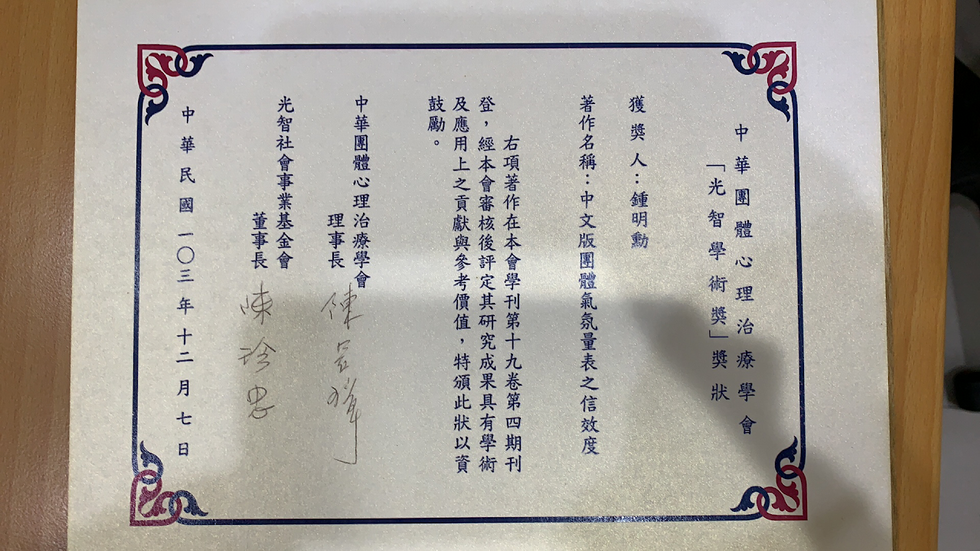 中華團體心理治療學會
「光智學術獎」獎狀
獲獎人：鍾明勳
著作名稱：中文版團體氣氛量表之信效度
右項著作在本會學刊第十九卷第四期刊
登，經本會審核後評定其研究成果具有學術
及應用上之貢獻與參考價值，特頒此狀以資
鼓勵。
中華團體心理治療學會
理事長
光智社會事業基金會
董事長
中華民國一〇三年十二月七日